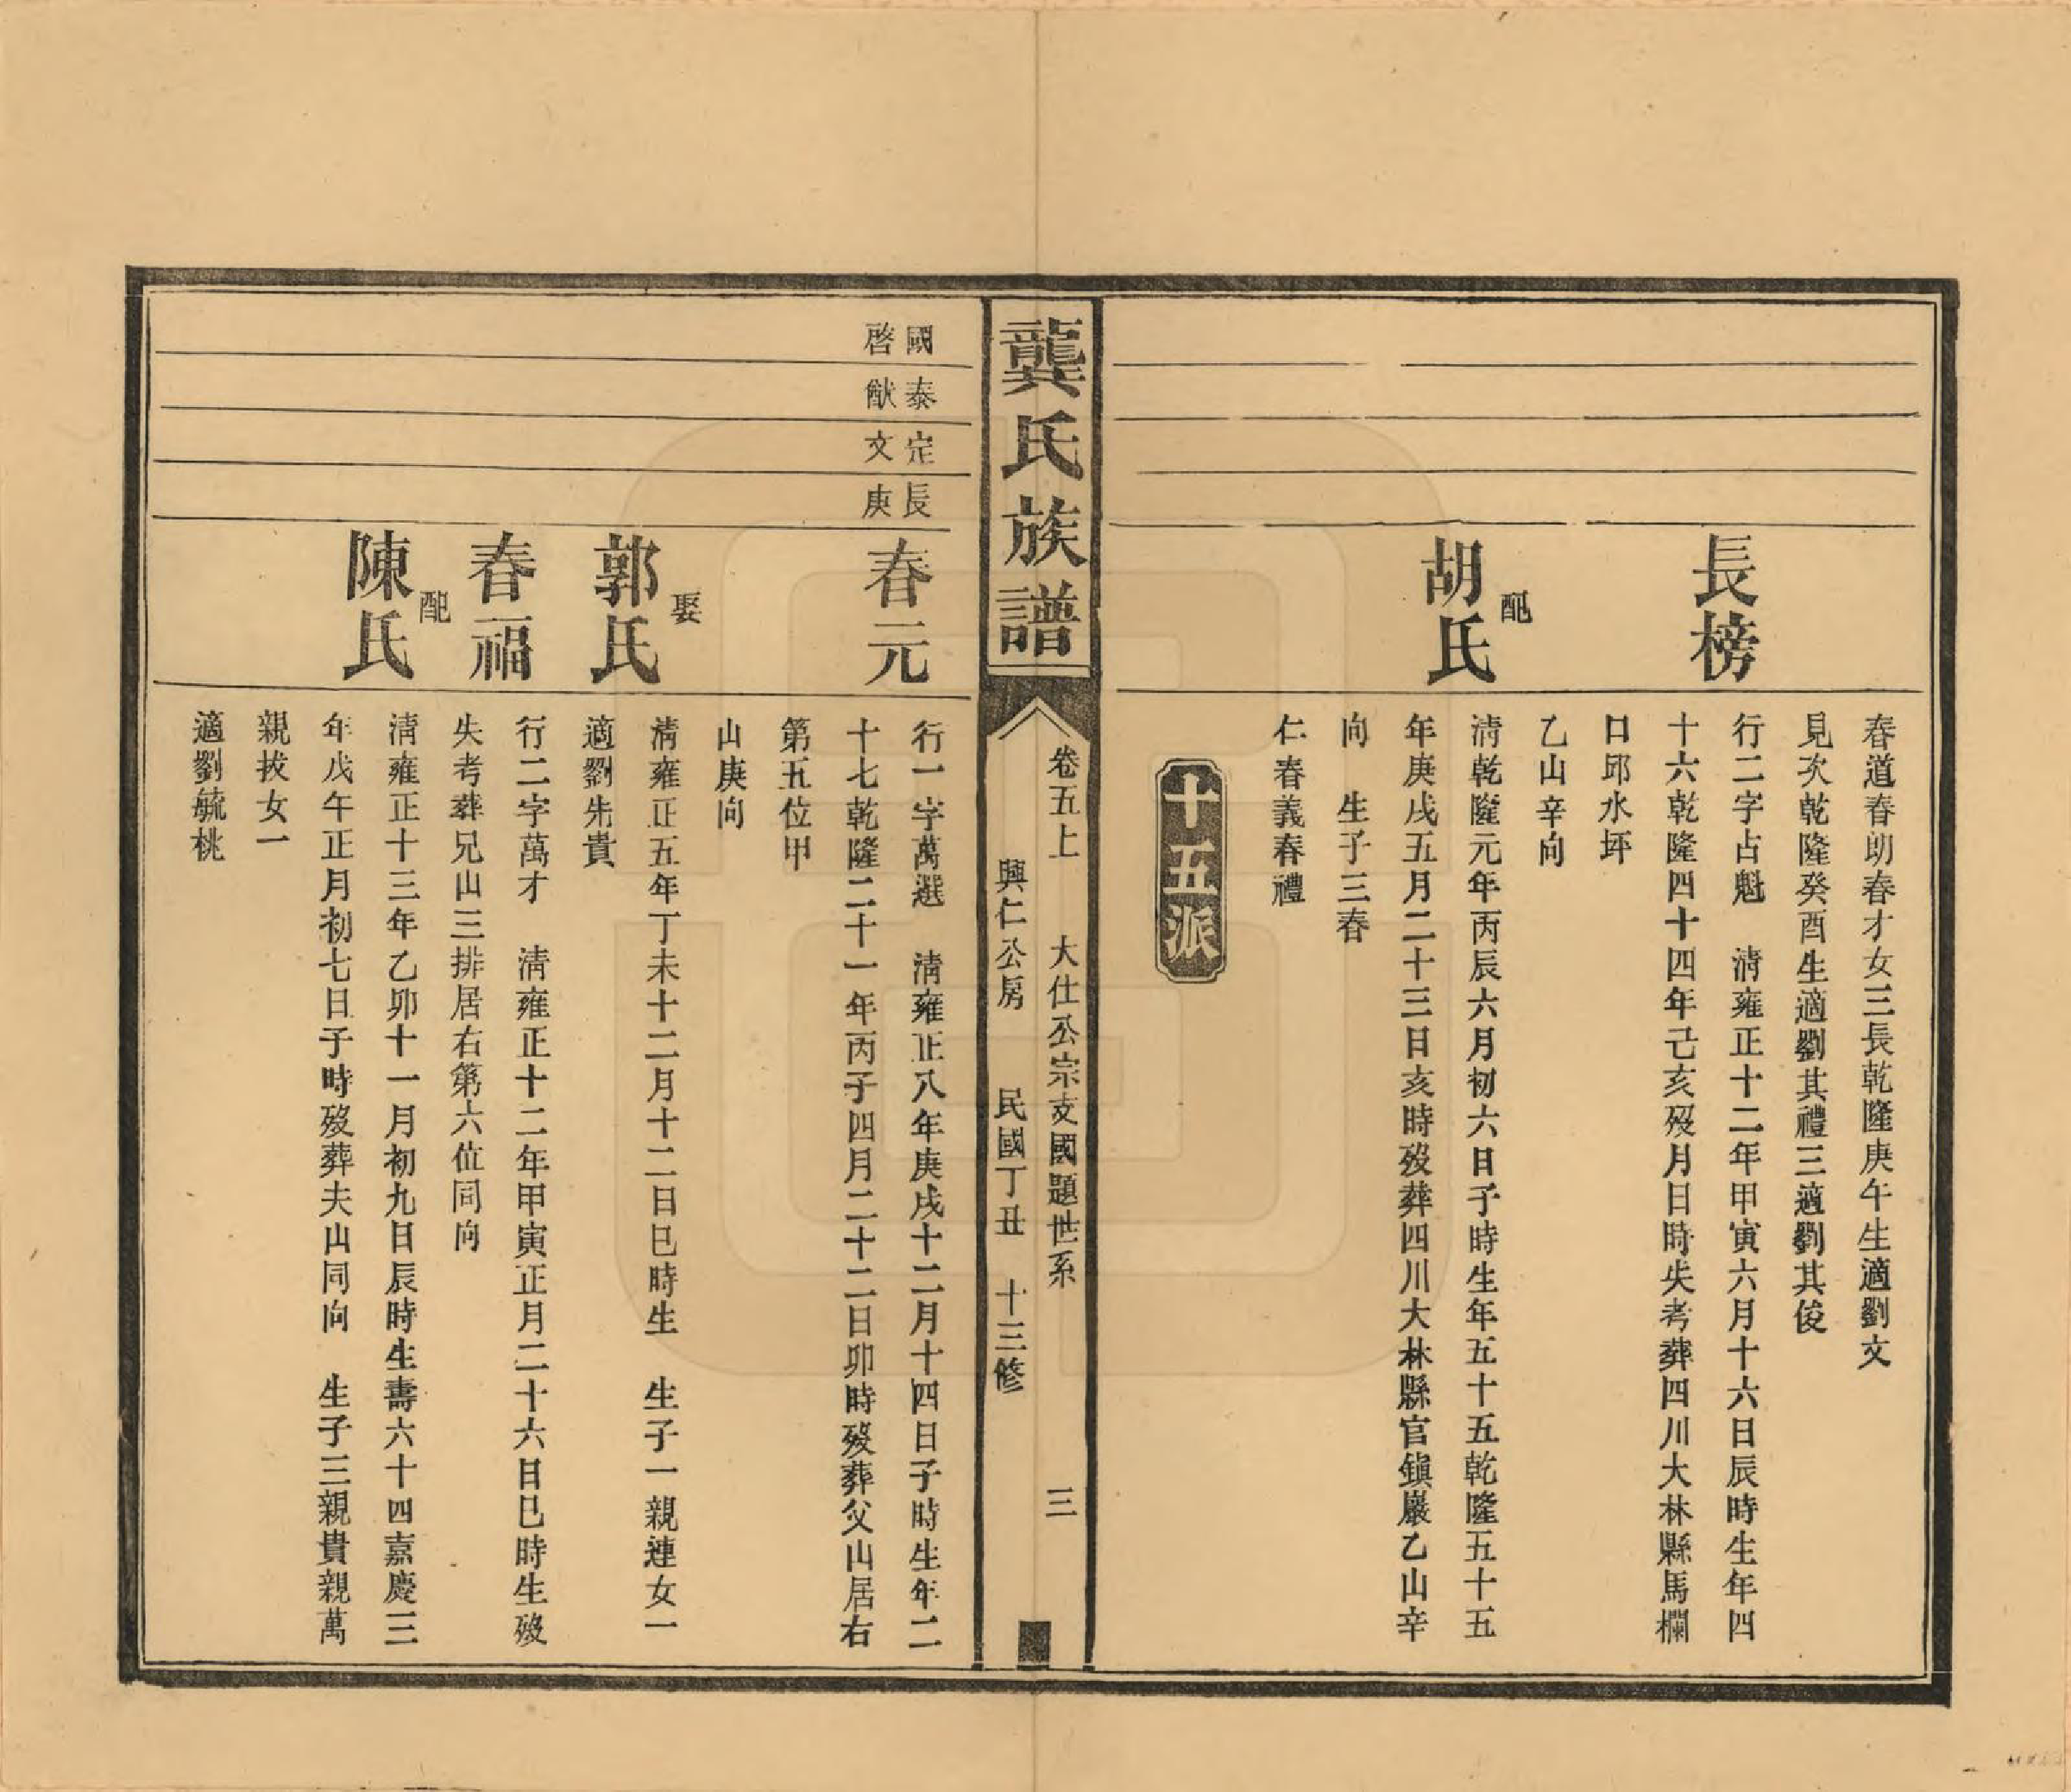 春道春朗春才女三長乾隆庚午生適劉文
見次乾隆癸酉生適劉其禮三適劉其俊
長榜
行二字占魁　淸雍正十二年甲寅六月十六日辰時生年四
十六乾隆四十四年己亥歿月日時失考葬四川大林縣馬欄
口邱水坪
乙山辛向
配
胡氏
淸乾隆元年丙辰六月初六日子時生年五十五乾隆五十五
年庚戌五月二十三日亥時歿葬四川大林縣官鎭巖乙山辛
向　生子三春
仁春義春禮
十五派
龔氏族譜
卷五上　大仕公宗支國題世系　三
興仁公房　民國丁丑　十三修
國泰定長
啓猷文庚
春元
行一字萬選　淸雍正八年庚戌十二月十四日子時生年二
十七乾隆二十一年丙子四月二十二日卯時歿葬父山居右
第五位甲
山庚向
娶
郭氏
淸雍正五年丁未十二月十二日巳時生　生子一親連女一
適劉朱貴
春福
行二字萬才　淸雍正十二年甲寅正月二十六日巳時生歿
失考葬兄山三排居右第六位同向
配
陳氏
淸雍正十三年乙卯十一月初九日辰時生壽六十四嘉慶三
年戊午正月初七日子時歿葬夫山同向　生子三親貴親萬
親拔女一
適劉毓桃